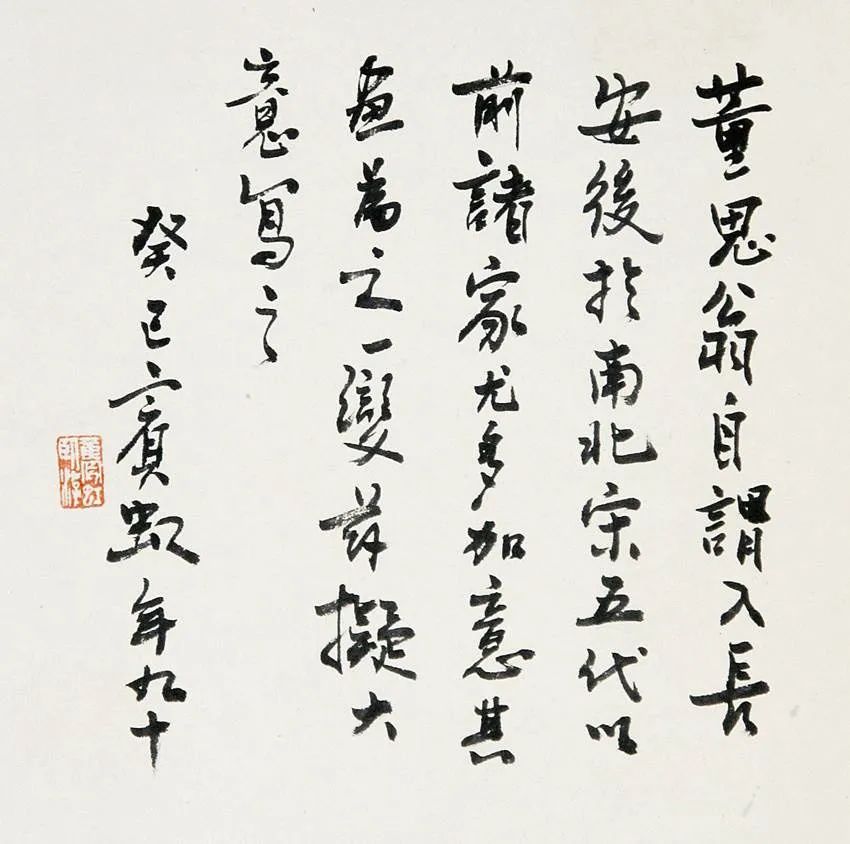 董思翁自謂入長
安後於南北宋五代以
前諸家尤多加意其
畫為之一變茲擬大
意寫之
癸巳賓虹年九十